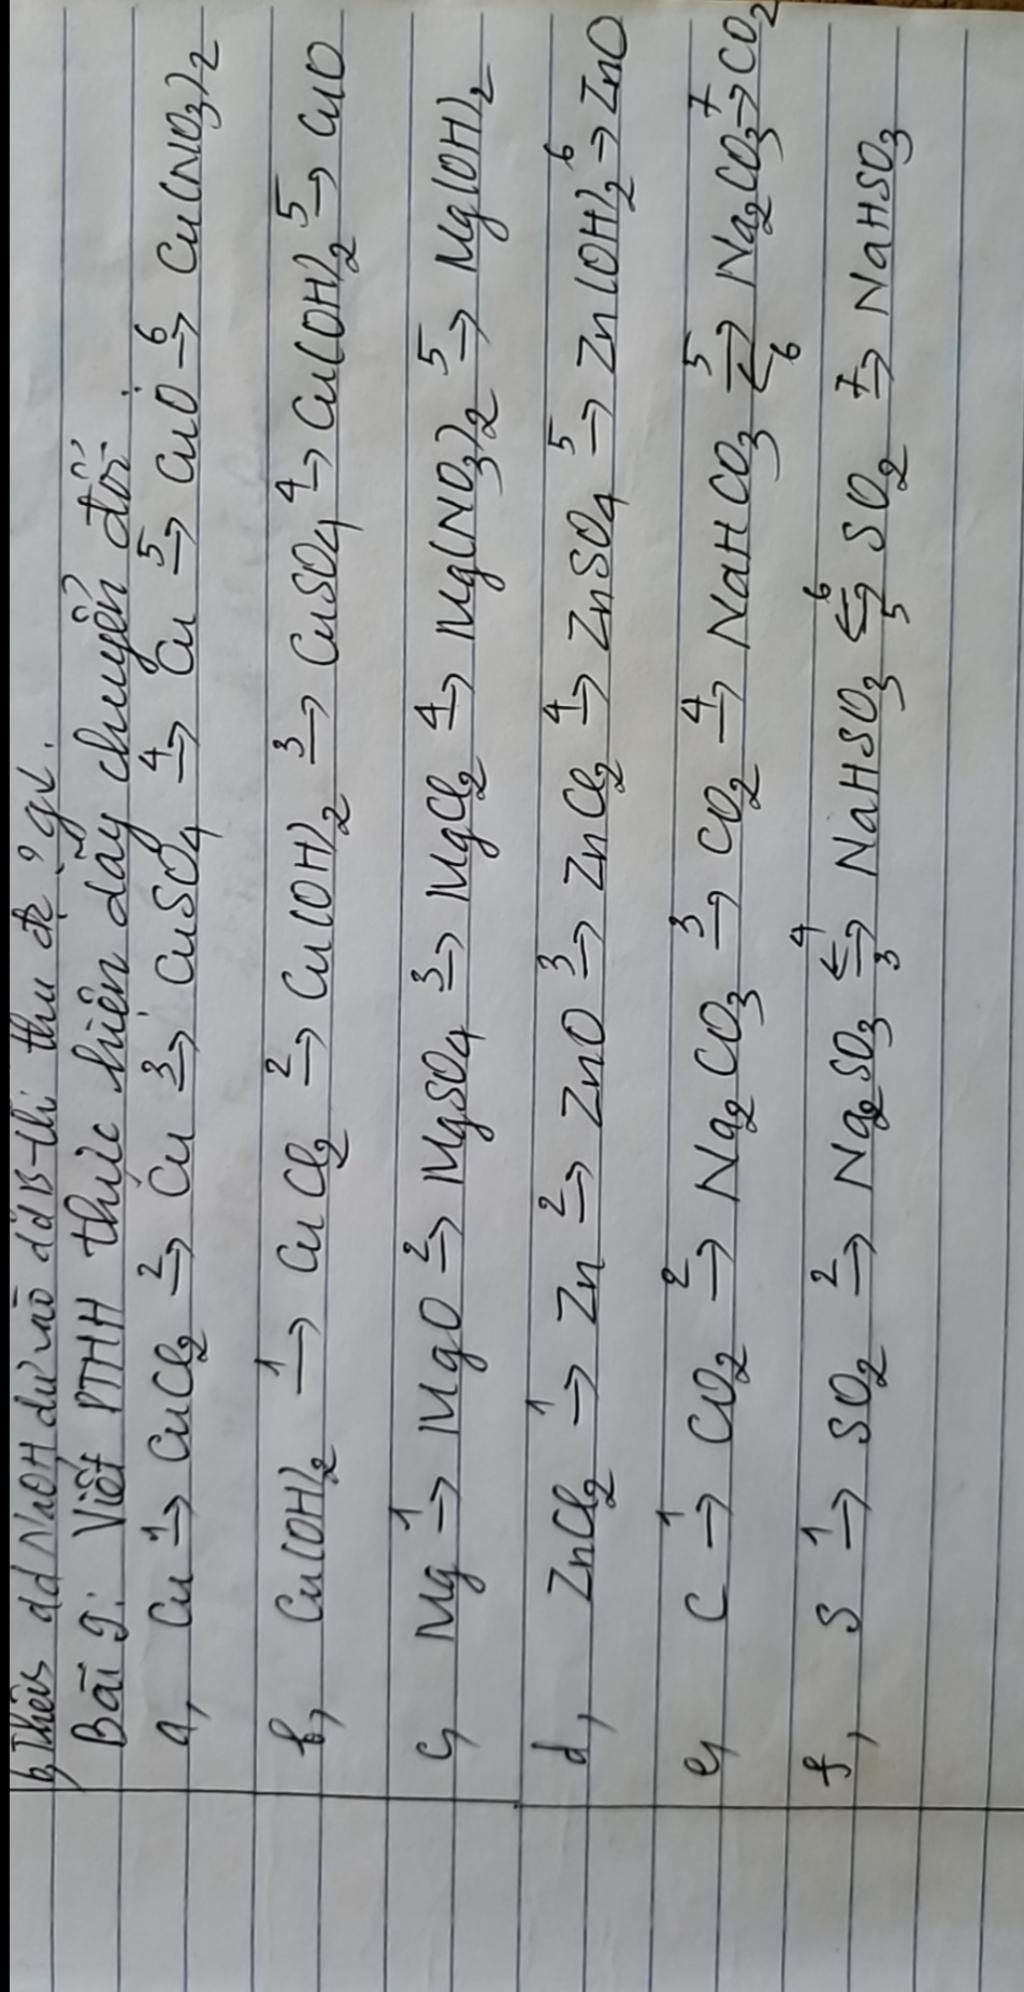 b, Thêm dd NaOH dư vào dd B thì thu đc ? gk.
Bài 2: Viết PTHH thực hiện dãy chuyển đổi:
a, Cu -1-> CuCl2 -2-> Cu -3-> CuSO4 -4-> Cu -5-> CuO -6-> Cu(NO3)2
b, Cu(OH)2 -1-> CuCl2 -2-> Cu(OH)2 -3-> CuSO4 -4-> Cu(OH)2 -5-> CuO
c, Mg -1-> MgO -2-> MgSO4 -3-> MgCl2 -4-> Mg(NO3)2 -5-> Mg(OH)2
d, ZnCl2 -1-> Zn -2-> ZnO -3-> ZnCl2 -4-> ZnSO4 -5-> Zn(OH)2 -6-> ZnO
e, C -1-> CO2 -2-> Na2CO3 -3-> CO2 -4-> NaHCO3 5⇌6 Na2CO3 -7-> CO2
f, S -1-> SO2 -2-> Na2SO3 4⇌3 NaHSO3 6⇌5 SO2 -7-> NaHSO3